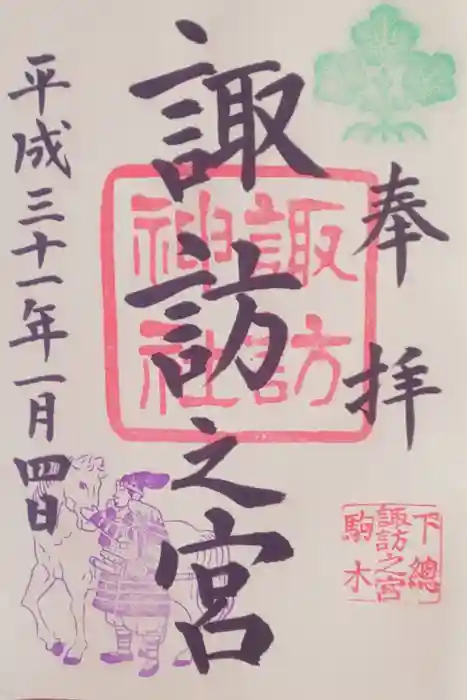 奉拝
諏訪之宮
諏訪
神社
下總
諏訪之宮
駒木
平成三十一年一月四日